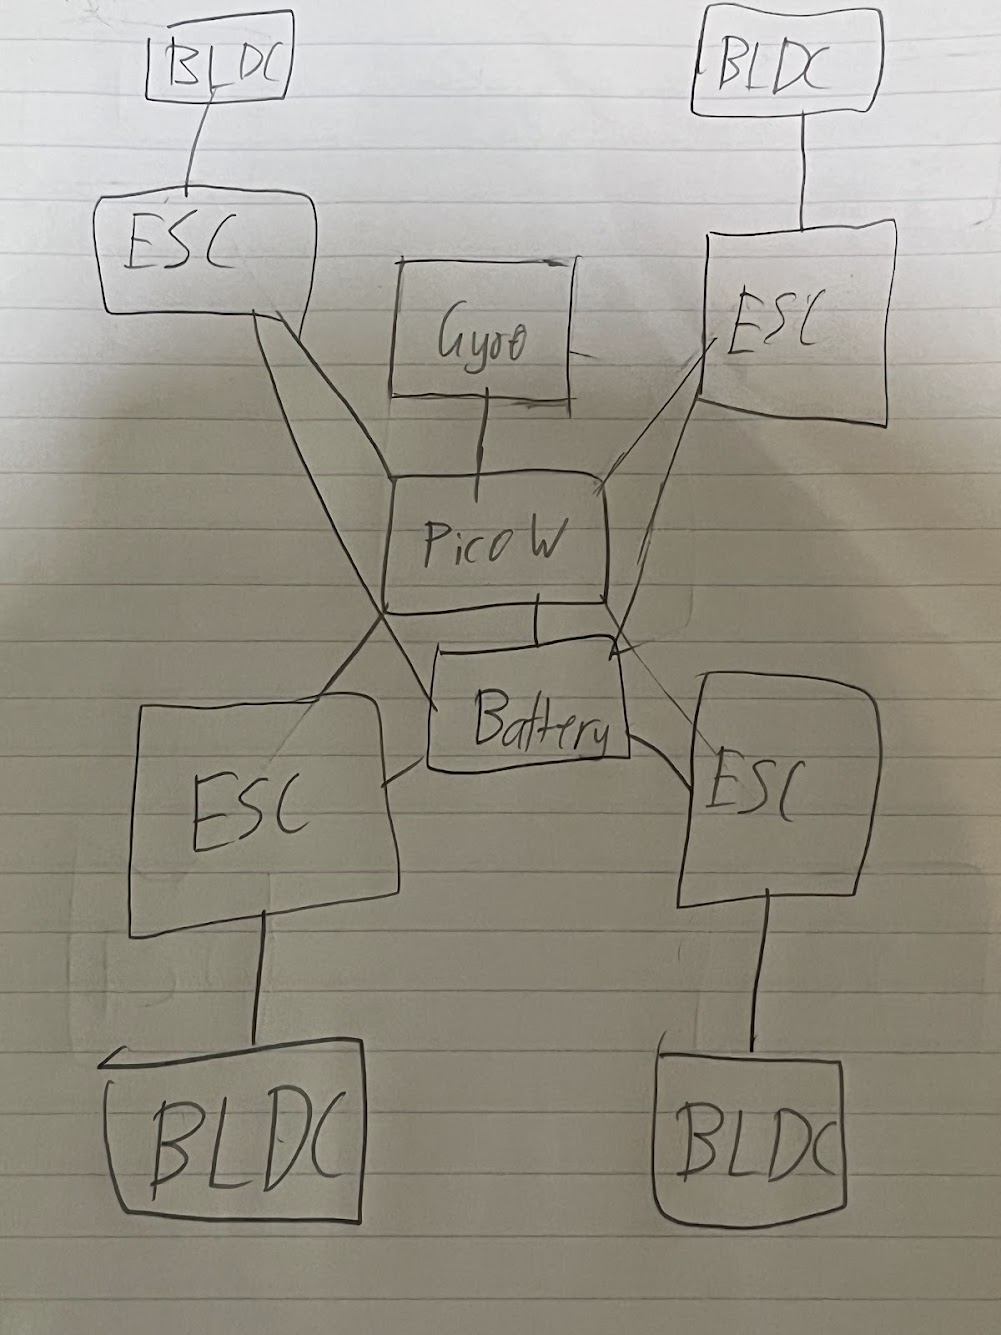 BLDC
BLDC
ESC
ESC
Gyro
Pico W
Battery
ESC
ESC
BLDC
BLDC